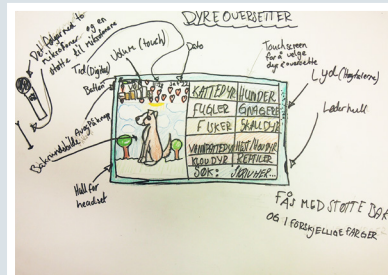 DYREOVERSETTER
Det følger med to
mikrofoner og en
støtte til mikrofonene
Tid (Digital)
Volum (touch)
Dato
Batteri
Av og På knapp
Bakrunnsbilde
Hull for
headset
Touchscreen
for å velge
dyr å oversette
Lyd (Høyttalerne)
Laderhull
KATTEDYR
HUNDER
FUGLER
GNAGERE
FISKER
SKALLDYR
VANNPATTEDYR
HEST/HOVDYR
KLOVDYR
REPTILER
SØK:
SKRIV HER...
FÅS MED STØTTE BAK
OG I FORSKJELLIGE FARGER